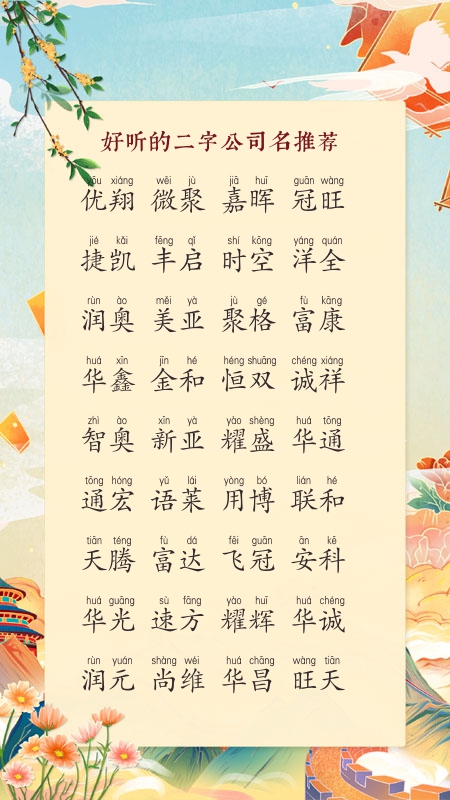 好听的二字公司名推荐
yōu xiáng wēi jù jiā huī guān wàng
优翔 微聚 嘉晖 冠旺
jié kǎi fēng qǐ shí kōng yáng quán
捷凯 丰启 时空 洋全
rùn ào měi yà jù gé fù kāng
润奥 美亚 聚格 富康
huá xīn jīn hé héng shuāng chéng xiáng
华鑫 金和 恒双 诚祥
zhì ào xīn yà yào shèng huá tōng
智奥 新亚 耀盛 华通
tōng hóng yǔ lái yòng bó lián hé
通宏 语莱 用博 联和
tiān téng fù dá fēi guān ān kē
天腾 富达 飞冠 安科
huá guāng sù fāng yào huī huá chéng
华光 速方 耀辉 华诚
rùn yuán shàng wéi huá chāng wàng tiān
润元 尚维 华昌 旺天